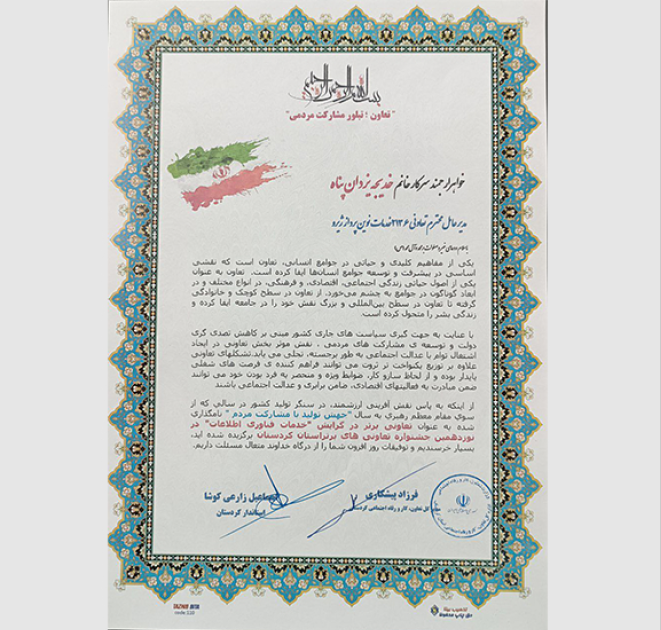 بسم الله الرحمن الرحیم
"تعاون ؛ تبلور مشارکت مردمی"
خواهر ارجمند سرکار خانم خدیجه یزدان پناه
مدیرعامل محترم تعاونی ۲۱۳۶ خدمات نوین پرداز ژیره
یکی از مفاهیم کلیدی و حیاتی در جوامع انسانی، تعاون است که نقشی
اساسی در پیشرفت و توسعه جوامع انسان‌ها ایفا کرده است. تعاون به عنوان
یکی از اصول حیاتی زندگی اجتماعی، اقتصادی، و فرهنگی، در انواع مختلف و در
ابعاد گوناگون در جوامع به چشم می‌خورد. از تعاون در سطح کوچک و خانوادگی
گرفته تا تعاون در سطح بین‌المللی و بزرگ نقش خود را در جامعه ایفا کرده و
زندگی بشر را متحول کرده است.
با عنایت به جهت گیری سیاست های جاری کشور مبنی بر کاهش تصدی گری
دولت و توسعه ی مشارکت های مردمی ، نقش موثر بخش تعاونی در ایجاد
اشتغال توام با عدالت اجتماعی به طور برجسته، تجلی می یابد.تشکلهای تعاونی
علاوه بر توزیع یکنواخت تر ثروت می توانند فراهم کننده ی فرصت های شغلی
پایدار بوده و از لحاظ سازو کار، ضوابط ویژه و منحصر به فرد بودن خود می توانند
ضمن مبادرت به فعالیتهای اقتصادی، ضامن برابری و عدالت اجتماعی باشند
از اینکه به پاس نقش آفرینی ارزشمند، در سنگر تولید کشور در سالی که از
سوی مقام معظم رهبری به سال "جهش تولید با مشارکت مردم " نامگذاری
شده به عنوان تعاونی برتر در گرایش "خدمات فناوری اطلاعات" در
نوزدهمین جشنواره تعاونی های برتراستان کردستان برگزیده شده اید،
بسیار خرسندیم و توفیقات روز افزون شما را از درگاه خداوند متعال مسئلت داریم.
فرزاد پیشکاری
مدیر کل تعاون، کار و رفاه اجتماعی کردستان
اسماعیل زارعی کوشا
استاندار کردستان